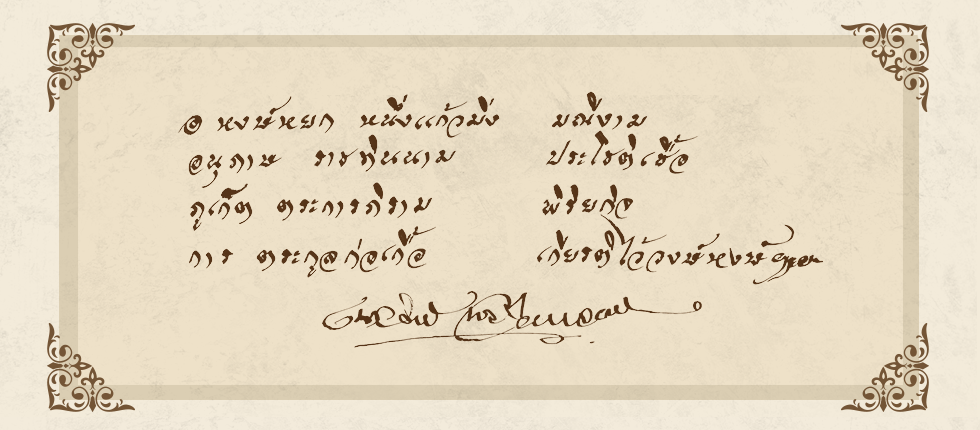 ๏ หงษ์หยก หนึ่งแก้วมิ่ง มณีงาม
อนุภาษ ราชทินนาม เชื้อ
ภูเก็ต ตระการภิราม พิริยก่อ
การ ตระกูลก่อเกื้อ เกียรติไว้วงษ์หงษ์